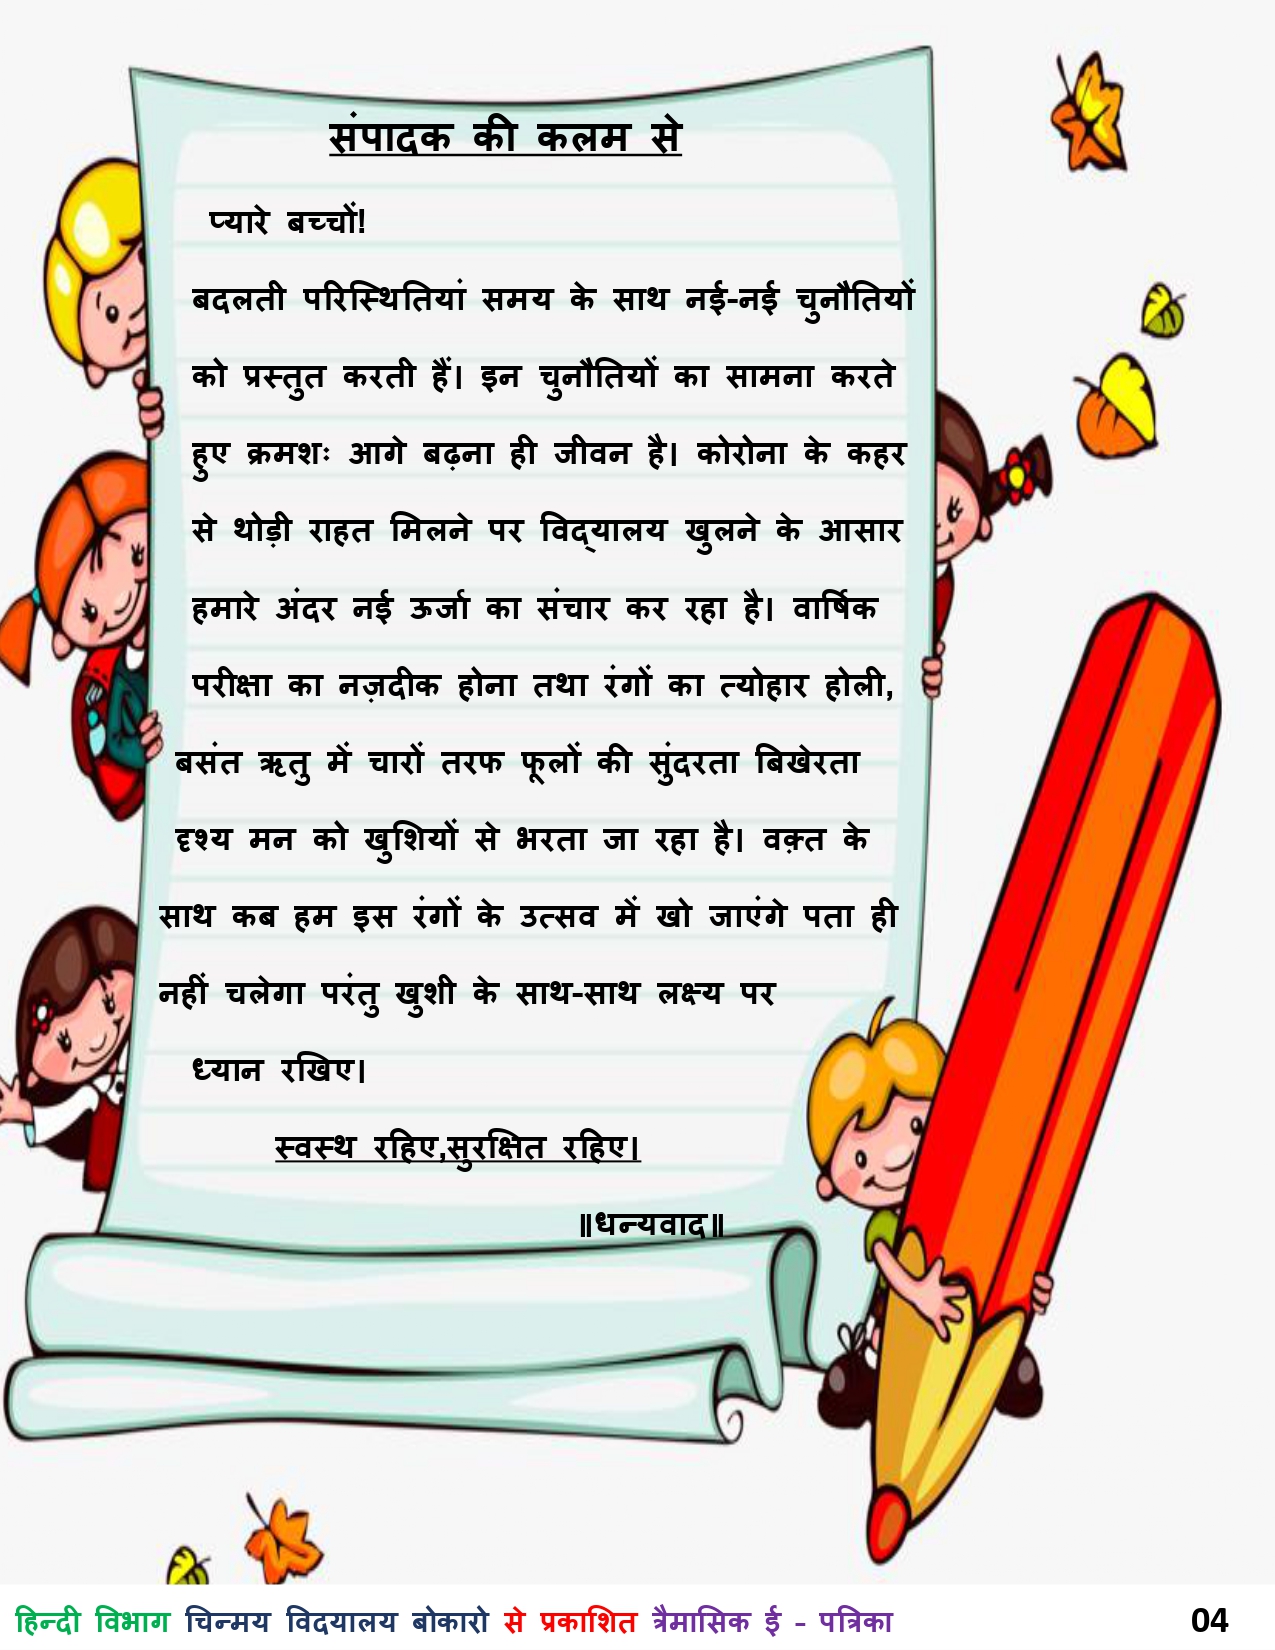 संपादक की कलम से
प्यारे बच्चों!
बदलती परिस्थितियां समय के साथ नई-नई चुनौतियों
को प्रस्तुत करती हैं। इन चुनौतियों का सामना करते
हुए क्रमशः आगे बढ़ना ही जीवन है। कोरोना के कहर
से थोड़ी राहत मिलने पर विद्यालय खुलने के आसार
हमारे अंदर नई ऊर्जा का संचार कर रहा है। वार्षिक
परीक्षा का नज़दीक होना तथा रंगों का त्योहार होली,
बसंत ऋतु में चारों तरफ फूलों की सुंदरता बिखेरता
दृश्य मन को खुशियों से भरता जा रहा है। वक़्त के
साथ कब हम इस रंगों के उत्सव में खो जाएंगे पता ही
नहीं चलेगा परंतु खुशी के साथ-साथ लक्ष्य पर
ध्यान रखिए।
स्वस्थ रहिए,सुरक्षित रहिए।
॥धन्यवाद॥
हिन्दी विभाग चिन्मय विदयालय बोकारो से प्रकाशित त्रैमासिक ई - पत्रिका 04